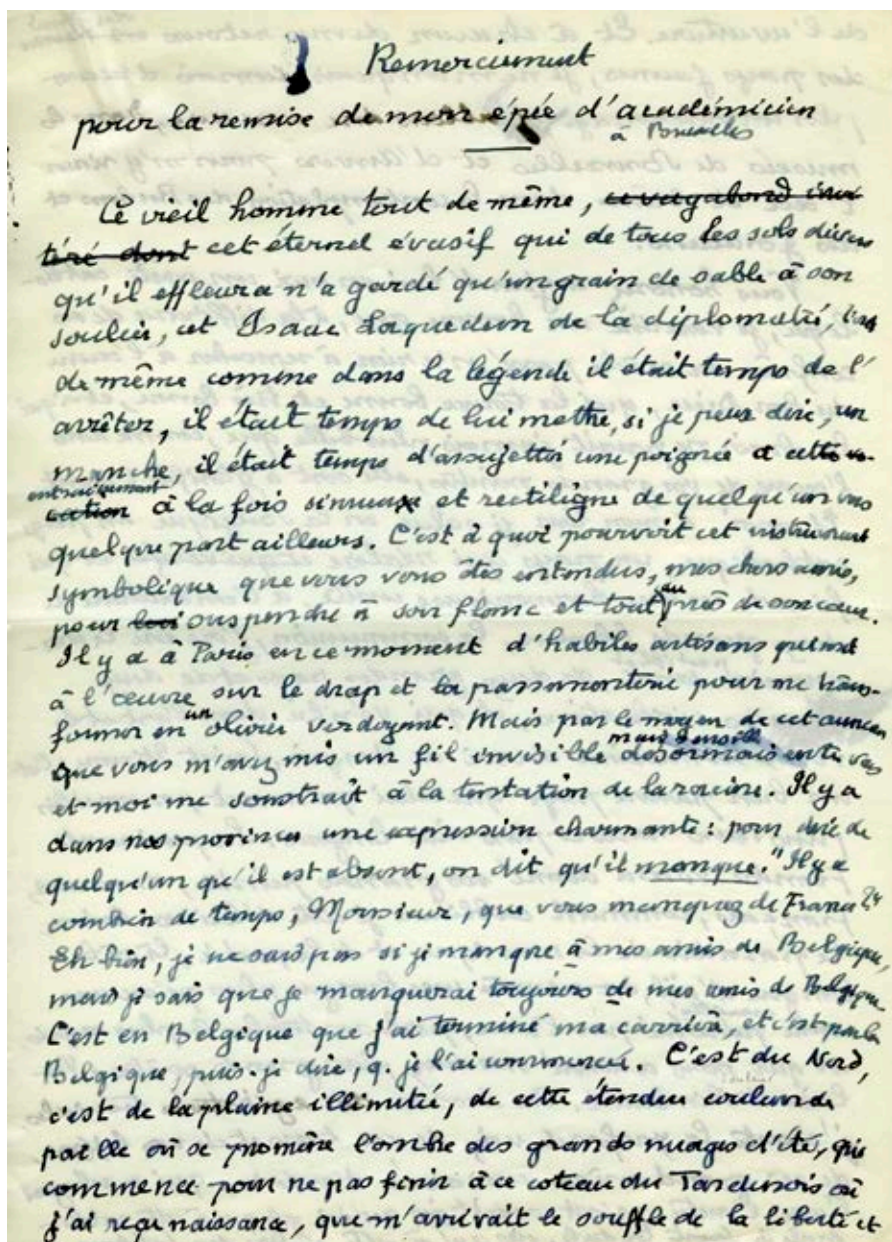 Remerciement
pour la remise de mon épée d'académicien
à Bruxelles
Ce vieil homme tout de même, ce vagabond inv
té ré dont cet éternel évasif qui de tous les sols divers
qu'il effleura n'a gardé qu'un grain de sable à son
soulier, cet Isaac Laquedem de la diplomatie, tout
de même comme dans la légende il était temps de l'
arrêter, il était temps de lui mettre, si je peux dire, un
manche, il était temps d'assujettir une poignée à cette vo-
cation à la fois sinueux et rectiligne de quelqu'un vers
quelque part ailleurs. C'est à quoi pourvoit cet instrument
symbolique que vous vous êtes entendus, mes chers amis,
pour suspendre à son flanc et tout au près de son cœur.
Il y a à Paris en ce moment d'habiles artisans qui sont
à l'œuvre sur le drap et la passementerie pour me trans-
former en un olivier verdoyant. Mais par le moyen de cet anneau
mais sensible
que vous m'avez mis un fil invisible désormais entre vous
et moi me soustrait à la tentation de la racine. Il y a
dans nos provinces une expression charmante : pour dire de
quelqu'un qu'il est absent, on dit qu'il manque. "Il y a
combien de temps, Monsieur, que vous manquez de France ?"
Eh bien, je ne sais pas si je manque à mes amis de Belgique,
mais je sais que je manquerai toujours de mes amis de Belgique.
C'est en Belgique que j'ai terminé ma carrière, et c'est par la
Belgique, puis-je dire, q. je l'ai commencée. C'est du Nord,
c'est de la plaine illimitée, de cette étendue couleur de
paille où se promène l'ombre des grands nuages d'été, qui
commence pour ne pas finir à ce coteau du Tardenois où
j'ai reçu naissance, que m'arrivait le souffle de la liberté et